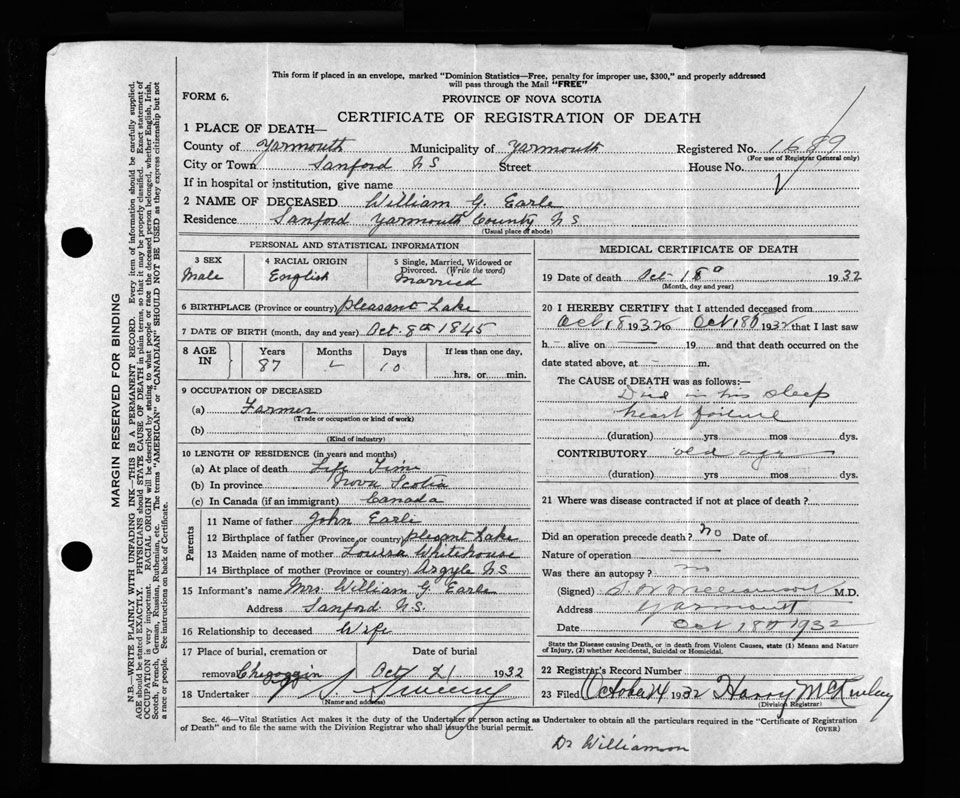 This form if placed in an envelope, marked "Dominion Statistics—Free, penalty for improper use, $300," and properly addressed
will pass through the Mail "FREE"
FORM 6.
PROVINCE OF NOVA SCOTIA
CERTIFICATE OF REGISTRATION OF DEATH
1 PLACE OF DEATH—
County of Yarmouth Municipality of Yarmouth Registered No. 1689
(For use of Registrar General only)
City or Town Sanford N S Street House No.
If in hospital or institution, give name
2 NAME OF DECEASED William G. Earle
Residence Sanford Yarmouth County N S
(Usual place of abode)
PERSONAL AND STATISTICAL INFORMATION
3 SEX 4 RACIAL ORIGIN 5 Single, Married, Widowed or
Divorced. (Write the word)
Male English Married
6 BIRTHPLACE (Province or country) pleasant Lake
7 DATE OF BIRTH (month, day and year) Oct. 8th 1845
8 AGE IN Years Months Days If less than one day,
87 10 hrs. or min.
9 OCCUPATION OF DECEASED
(a) Farmer
(Trade or occupation or kind of work)
(b)
(Kind of industry)
10 LENGTH OF RESIDENCE (in years and months)
(a) At place of death Life Time
(b) In province Nova Scotia
(c) In Canada (if an immigrant) Canada
Parents
11 Name of father John Earle
12 Birthplace of father (Province or country) plesant Lake
13 Maiden name of mother Louisa Whitehouse
14 Birthplace of mother (Province or country) Argyle N S
15 Informant's name Mrs. William G Earle
Address Sanford N.S.
16 Relationship to deceased Wife
17 Place of burial, cremation or Date of burial
removal Chegoggin Oct 21 1932
18 Undertaker Sweeny
(Name and address)
MEDICAL CERTIFICATE OF DEATH
19 Date of death Oct 18 1932
(Month, day and year)
20 I HEREBY CERTIFY that I attended deceased from
Oct 18 1932 to Oct 18 1932 that I last saw
h— alive on — 19 — and that death occurred on the
date stated above, at — m.
The CAUSE OF DEATH was as follows:—
Died in his sleep
heart failure
(duration) yrs mos dys.
CONTRIBUTORY old age
(duration) yrs mos dys.
21 Where was disease contracted if not at place of death?
Did an operation precede death? no Date of
Nature of operation
Was there an autopsy? no
(Signed) Williamson M.D.
Address Yarmouth
Date Oct 18 1932
State the Disease causing Death, or in death from Violent Causes, state (1) Means and Nature
of Injury, (2) whether Accidental, Suicidal or Homicidal.
22 Registrar's Record Number
23 Filed October 24 1932 Harry McKinlay
(Division Registrar)
Sec. 46—Vital Statistics Act makes it the duty of the Undertaker or person acting as Undertaker to obtain all the particulars required in the "Certificate of Registration
of Death" and to file the same with the Division Registrar who shall issue the burial permit.
(OVER)
Dr Williamson
MARGIN RESERVED FOR BINDING
N.B.—WRITE PLAINLY WITH UNFADING INK—THIS IS A PERMANENT RECORD. Every item of information should be carefully supplied.
AGE should be stated EXACTLY. PHYSICIANS should STATE CAUSE OF DEATH in plain terms, so that it may be properly classified. Exact statement of
OCCUPATION is very important. RACIAL ORIGIN will be described by stating to what people or race the deceased person belonged, whether English, Irish,
Scotch, French, German, Russian, Ruthenian, etc. The terms "AMERICAN" or "CANADIAN" SHOULD NOT BE USED as they express citizenship but not
a race or people. See instructions on back of Certificate.